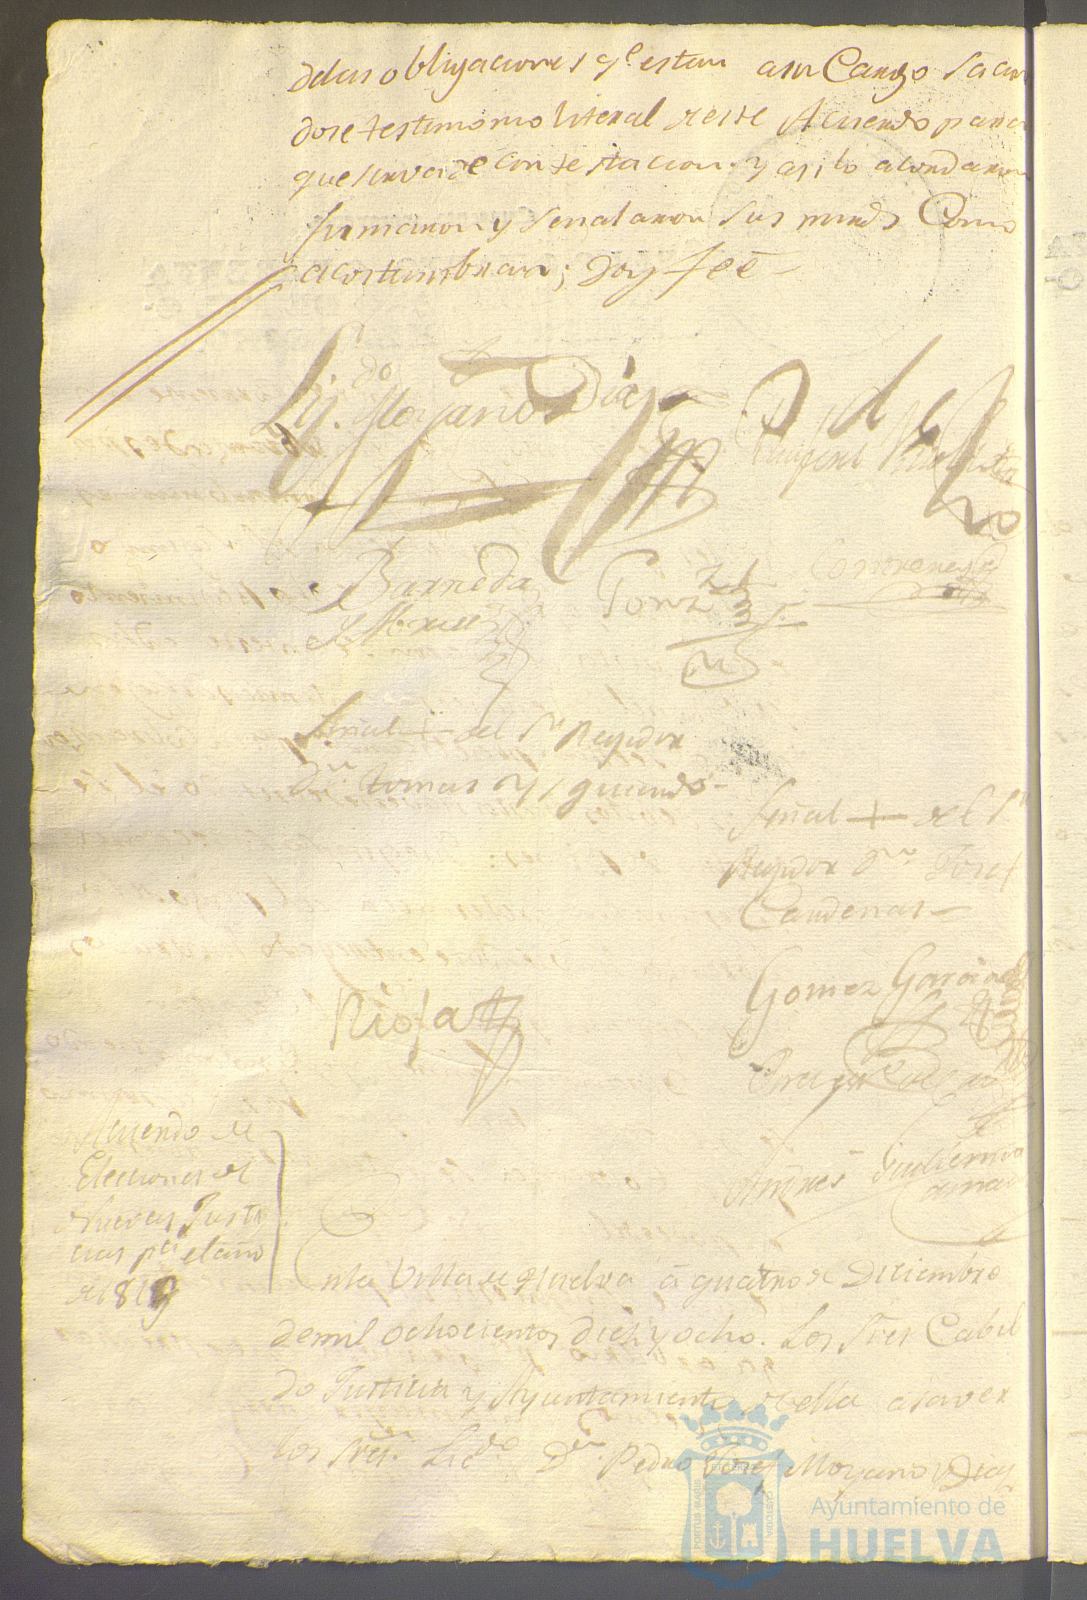 delas obligaciones qe. estan asu Cargo Sacan
dose testimonio literal de este Acuerdo para
que sirva de contestacion y asi lo acordaron
firmaron y Señalaron Sus mrds. Como
acostumbran; doy feé -
Lizdo. Moyano Diaz
Barreda
Gonz
Contreras
Señal + del Sr. Regidor
Dn. tomas Yzquierdo -
Señal + del Sr.
Regidor Dn. Josef
Cardenas -
Gomez Garcia
Rioja
Acuerdo de
Elecciones de
Nuevas Justi
cias pa. el año
de 1819
Enla Villa de Huelva á quatro de Diciembre
demil ochocientos diez y ocho. Los Sres. Cabil
do Justicia y Ayuntamiento de ella asaver
los Sres. Licdo. Dn. Pedro Josef Moyano Diaz
Ayuntamiento de
HUELVA